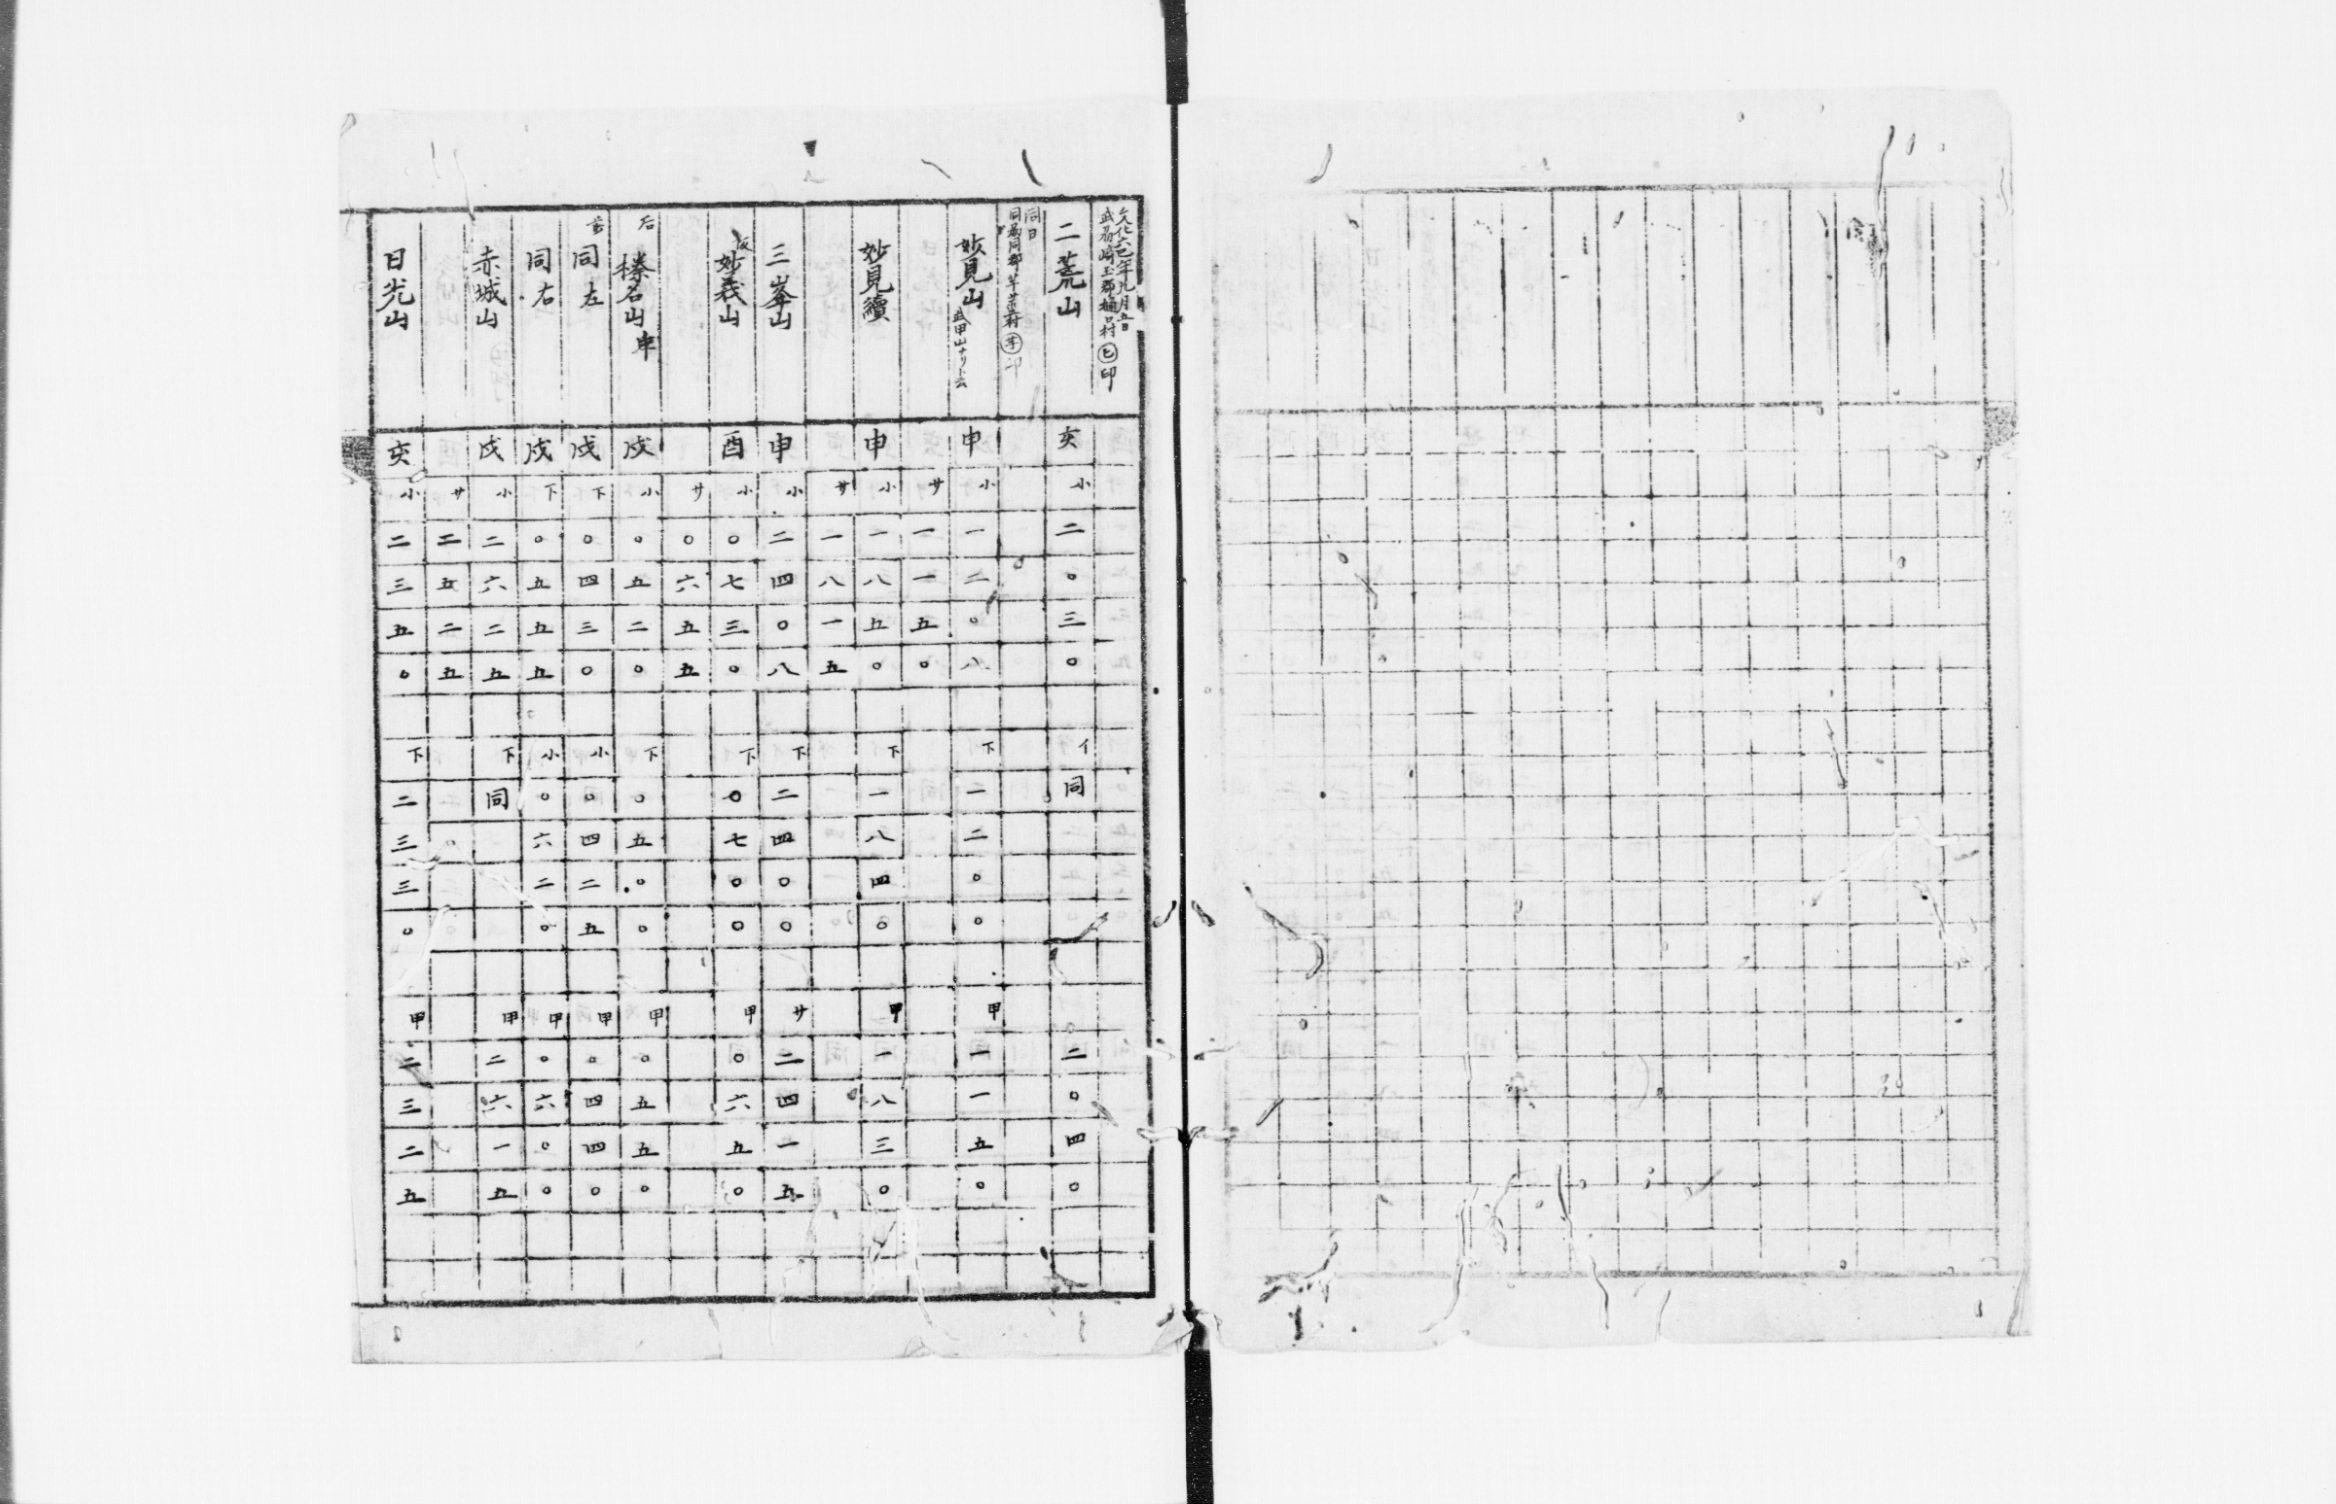 文化六巳年九月五日
武州崎玉郡樋口村㋪印
二荒山 亥 小 二〇三〇 イ 同 二〇四〇
同日
同州同郡
妙見山 武甲山ナリト云 申 小 一二〇八 下 一二〇〇 甲 一一五〇
サ 一一五〇
妙見續 申 小 一八五〇 下 一八四〇 甲 一八三〇
サ 一八一五
三峯山 申 小 二四〇八 下 二四〇〇 サ 二四一五
妙義山 酉 小 〇七三〇 下 〇七〇〇 甲 〇六五〇
サ 〇六五五
后 榛名山 申 戌 小 〇五二〇 下 〇五〇〇 甲 〇五五〇
前 同左 戌 下 〇四三〇 小 〇四二五 甲 〇四四〇
同右 戌 下 〇五五五 小 〇六二〇 甲 〇六〇〇
赤城山 戌 小 二六二五 下 同 甲 二六一五
サ 二五二五
日光山 亥 小 二三五〇 下 二三三〇 甲 二三二五